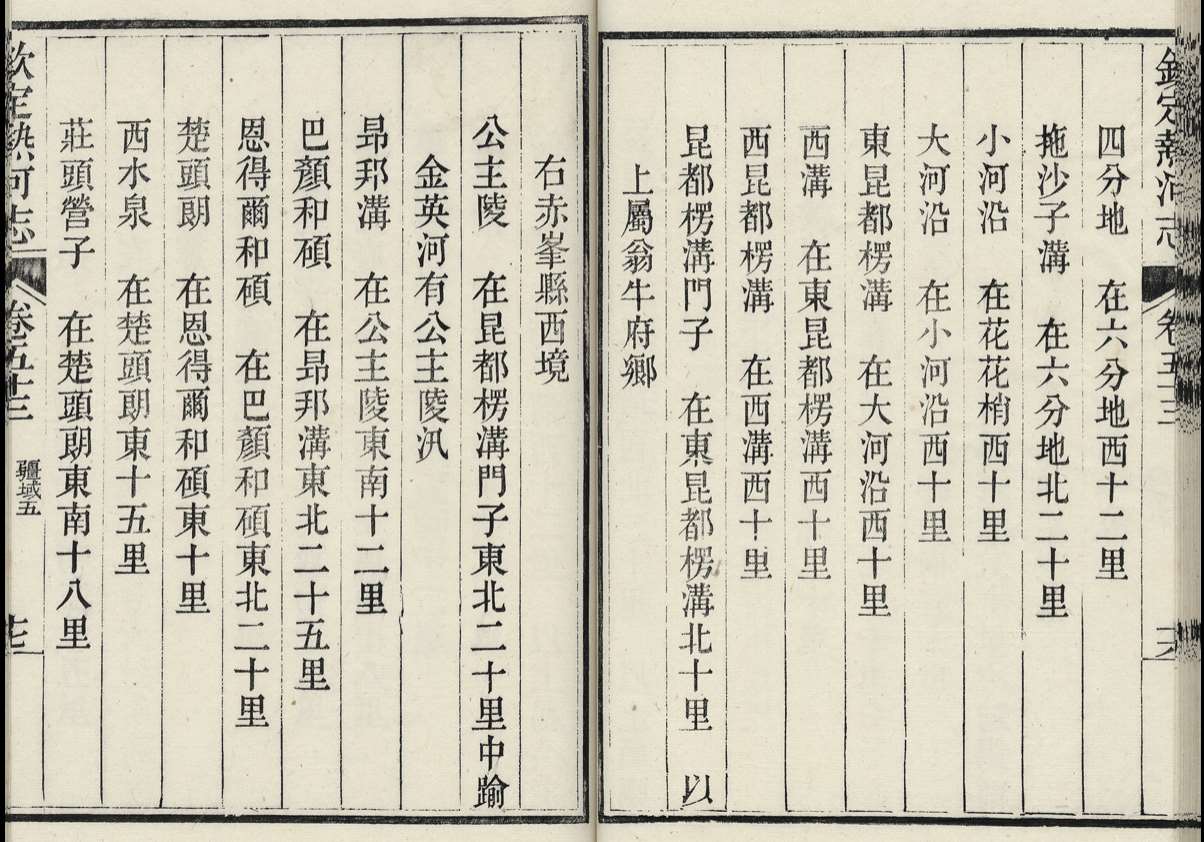 欽定熱河志 卷五十三
四分地 在六分地西十二里
拖沙子溝 在六分地北二十里
小河沿 在花花梢西十里
大河沿 在小河沿西十里
東昆都楞溝 在大河沿西十里
西溝 在東昆都楞溝西十里
西昆都楞溝 在西溝西十里
昆都楞溝門子 在東昆都楞溝北十里 以
上屬翁牛府鄉
右赤峯縣西境
公主陵 在昆都楞溝門子東北二十里中踰
金英河有公主陵汛
昂邦溝 在公主陵東南十二里
巴顏和碩 在昂邦溝東北二十五里
恩得爾和碩 在巴顏和碩東北二十里
楚頭朗 在恩得爾和碩東十里
西水泉 在楚頭朗東十五里
莊頭營子 在楚頭朗東南十八里
欽定熱河志 卷五十三 疆域五 十七